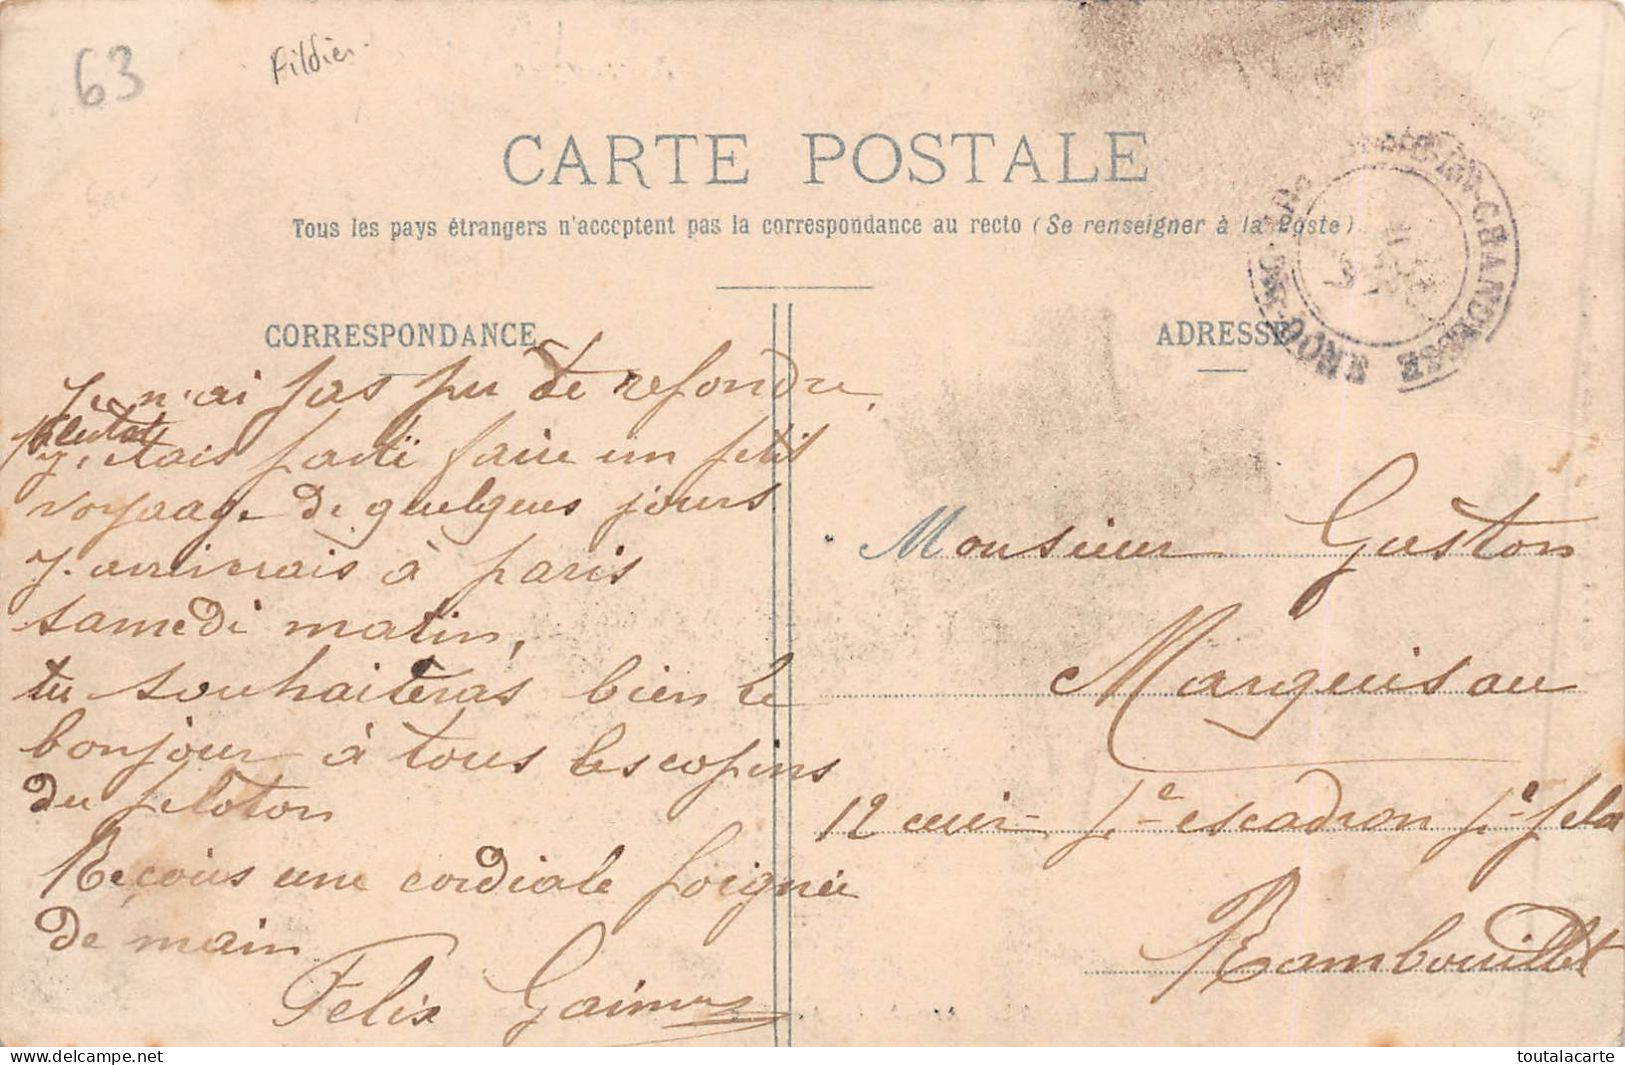 63
Fildier
CARTE POSTALE
Tous les pays étrangers n'acceptent pas la correspondance au recto (Se renseigner à la Poste)
CORRESPONDANCE
Je n'ai pas pu te refondre
plutot
j'etais parti faire un petit
voyaage de quelques jours
j'arriverais à paris
samedi matin,
tu souhaiteras bien le
bonjour à tous les copins
du peloton
Reçois une cordiale poignée
de main
Felix
ADRESSE
Monsieur Gaston
Marquisau
12 cuir 1e escadron 1e pelo
Rambouillet
toutalacarte